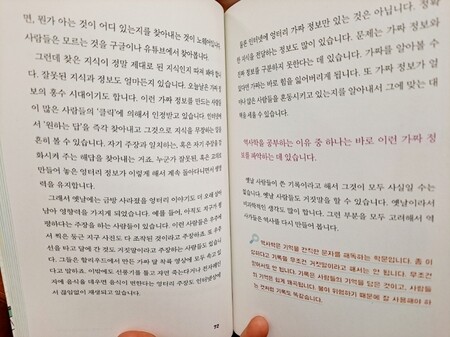 면, 뭔가 아는 것이 어디 있는지를 찾아내는 것이
사람들은 모르는 것을 구글이나 유튜브에서 찾아봅니다.
그런데 찾은 지식이 정말 제대로 된 지식인지 따져 봐야 합니
다. 잘못된 지식과 정보도 얼마든지 있습니다. 오늘날은 가짜 정
보의 홍수 시대이기도 합니다. 이런 가짜 정보를 만드는 사람들
이 많은 사람들의 '클릭'에 의해서 인정받고 있습니다.
서 '원하는 답'을 즉각 찾아내고 그것으로 지식을 무장하는 일을
흔히 볼 수 있습니다. 자기 주장과 일치하는, 혹은 자기 주장을
화시켜 주는 해답을 찾아내는 거죠. 누군가 잘못된, 혹은 고의로
만들어 놓은 엉터리 정보가 이렇게 해서 계속 돌아다니면서 생명
력을 유지합니다.
그래서 옛날에는 금방 사라졌을 엉터리 이야기도 더 오래 살아
남아 영향력을 가지게 되었습니다. 예를 들어, 아직도 지구가
평평하다는 주장을 하는 사람들이 있습니다. 이런 사람들은 우주에
서 찍은 둥근 지구 사진도 다 조작된 것이라고 주장하죠. 또 우주
선을 타고 달에 간 것도 거짓말이라고 주장하는 사람들도 있습니
다. 그들은 할리우드에서 만든 가짜 달 착륙 영상에 모두 속고 있
다고 말하죠. 이밖에도 선풍기를 틀고 자면 죽는다거나 전자레인
지에 음식을 데우면 음식이 변한다는 엉터리 주장도 인터넷상에
서 끊임없이 재생되고 있습니다.
57
물은 인터넷에 엉터리 가짜 정보만 있는 것은 아닙니다. 정확
한 지식을 전달하는 정보도 많이 있습니다. 문제는 가짜 정보와
정보를 구분하지 못한다는 데 있습니다. 가짜를 알아볼 수
있다면 가짜는 바로 힘을 잃어버리게 됩니다. 또 가짜 정보가 얼
마나 많은 사람들을 혼동시키고 있는지를 알아내서 그에 맞는 대
책을 세울 수 있습니다.
역사학을 공부하는 이유 중 하나는 바로 이런 가짜 정
보를 파악하는 데 있습니다.
옛날 사람들이 쓴 기록이라고 해서 그것이 모두 사실일 수는
없습니다. 옛날 사람들도 거짓말을 할 수 있습니다. 옛날이라서
비과학적인 생각도 많이 합니다. 그런 부분을 모두 고려해서 역
사가들은 역사를 다시 만들어 봅니다.
역사학은 기억을 간직한 문자를 해독하는 학문입니다.
기록은 무조건 거짓말이라고 해서는 안 됩니다. 무조건
안 됩니다. 기록은 사람들의 기억을 담은 것이고, 사람들
의 기억은 쉽게 왜곡됩니다. 불이 위험하기 때문에 잘 사용해야 하
는 것처럼 기록도 똑같습니다.